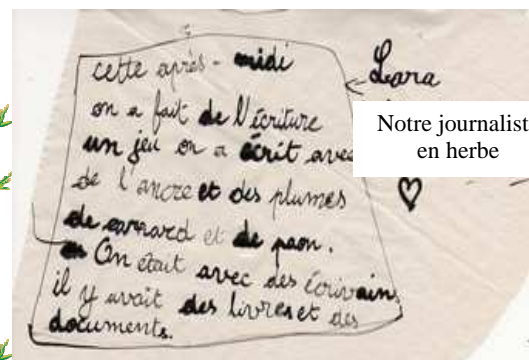 cette après-midi
on a fait de l'écriture
un jeu on a écrit avec
de l'ancre et des plumes
de cannard et de paon.
On était avec des écrivains
il y avait des livres et des
documents.
Lara
Notre journalist
en herbe